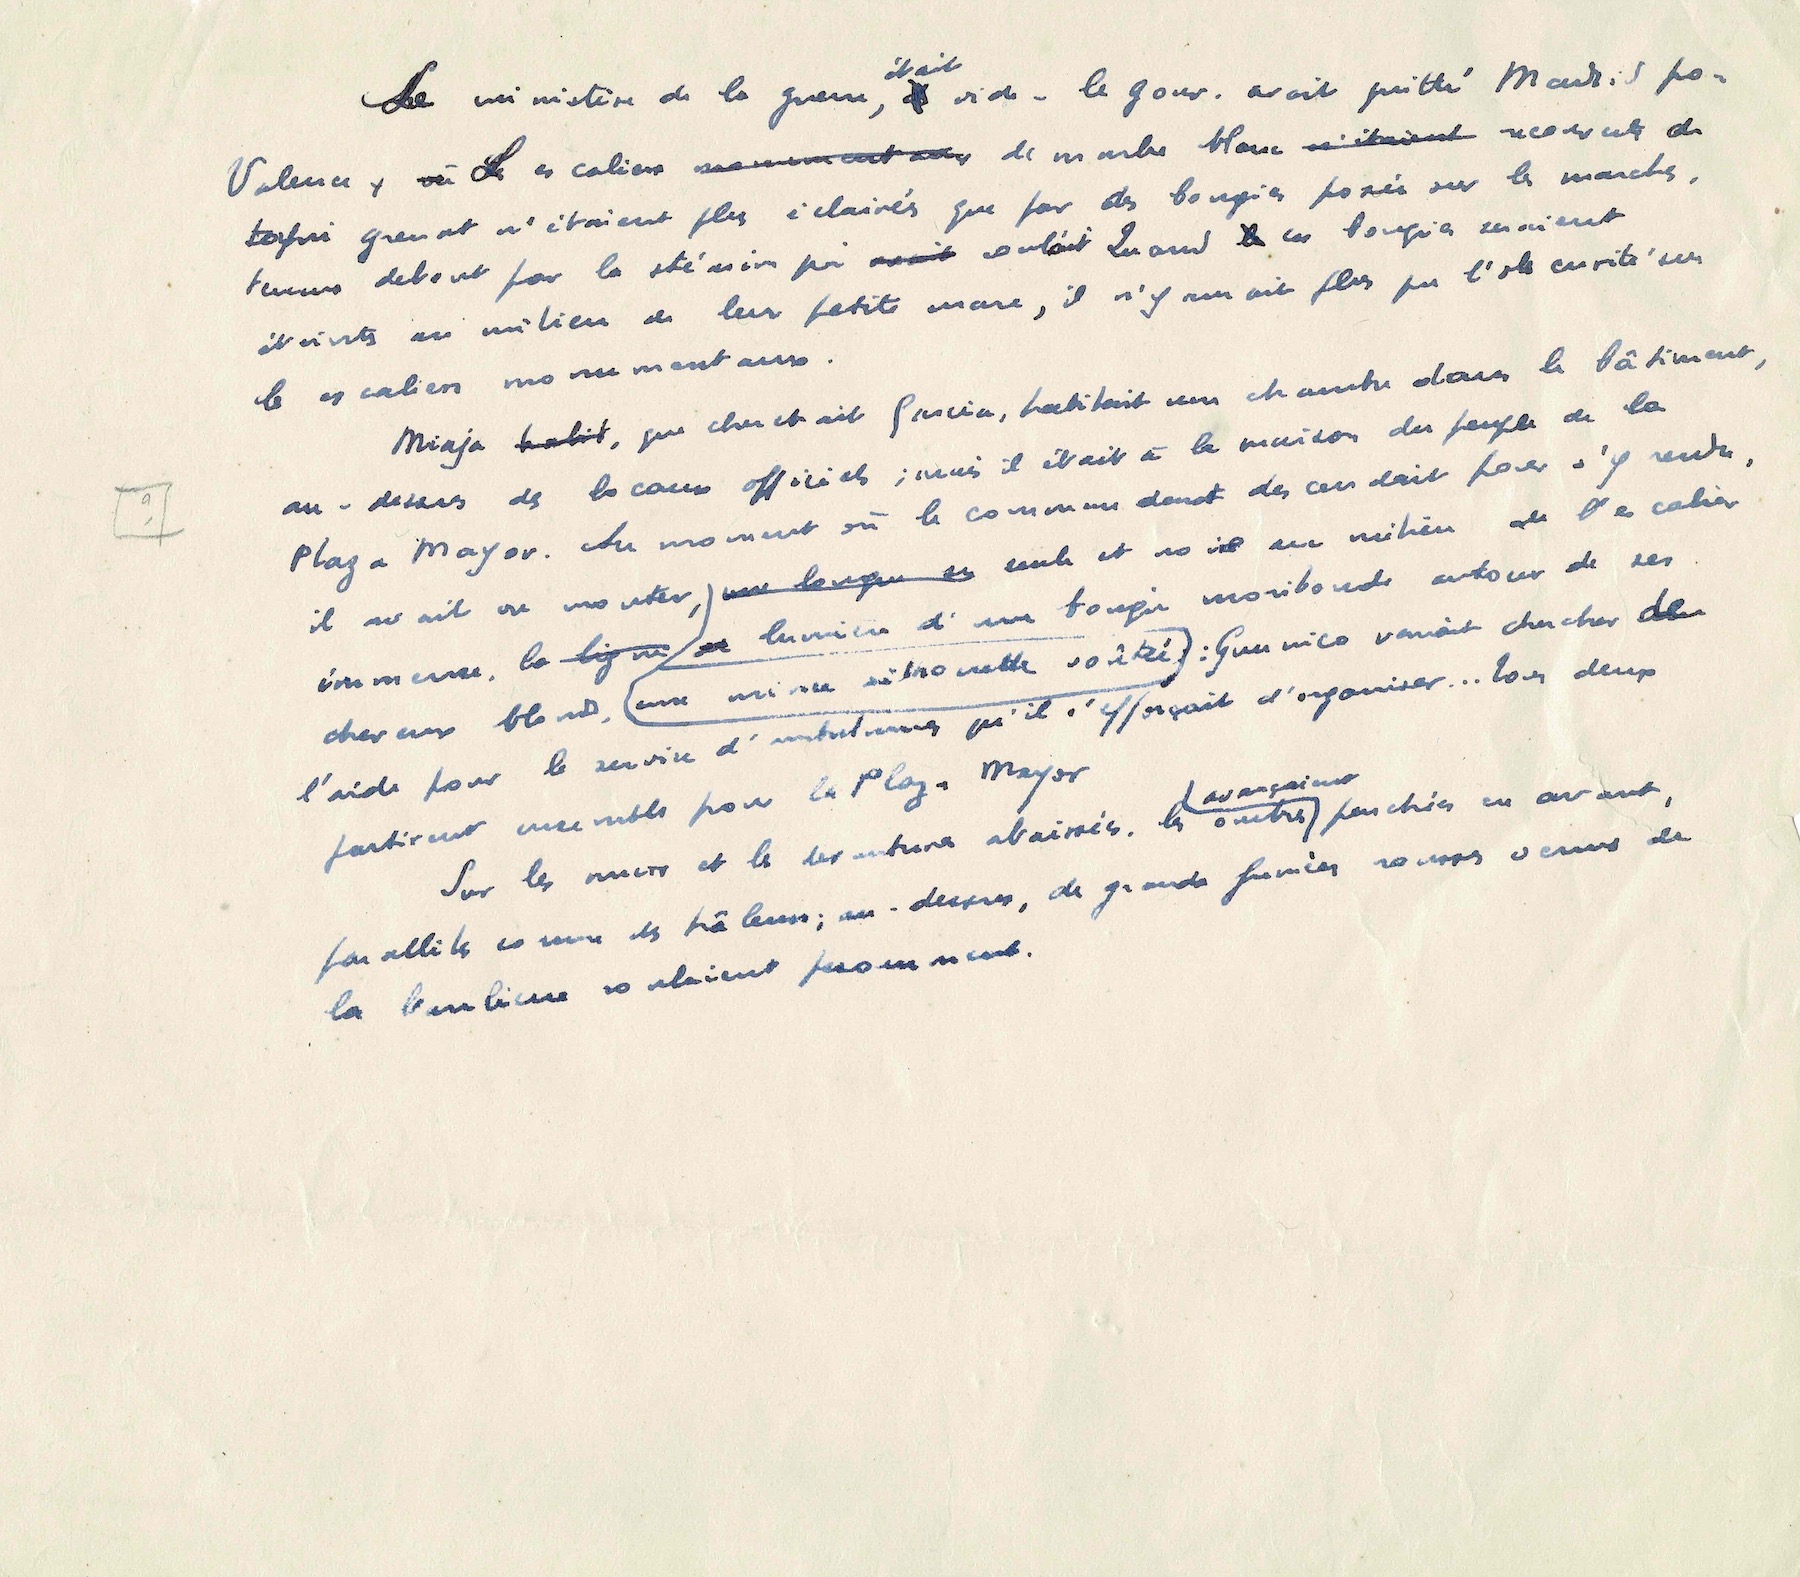 Le ministère de la guerre, était vide - le gouv. avait quitté Madrid pour
Valence, où Les escaliers monumentaux de marbre blanc n'étaient recouverts de
tapis grenat n'étaient plus éclairés que par des bougies posées sur les marches,
tenues debout par la stéarine qui avait coulait Quand ces bougies seraient
éteintes au milieu de leur petite mare, il n'y aurait plus que l'obscurité sur
les escaliers monumentaux.
Miaja habit, que cherchait Garcia, habitait une chambre dans le bâtiment,
au-dessus des locaux officiels ; mais il était à la maison du peuple de la
Plaza Mayor. Au moment où le commandant descendait pour s'y rendre,
il avait vu monter, une longue seule et noire au milieu de l'escalier
immense, la ligne lumière d'une bougie moribonde autour de ses
cheveux blonds, une mince silhouette voûtée : Guernico venait chercher de
l'aide pour le service d'ambulances qu'il s'efforçait d'organiser... Tous deux
partirent ensemble pour la Plaza Mayor
Sur les murs et les devantures abaissées, les ombres avançaient penchées en avant,
parallèles comme des hâleurs ; au-dessus, de grandes fumées rousses venues de
la banlieue roulaient pesamment.
9